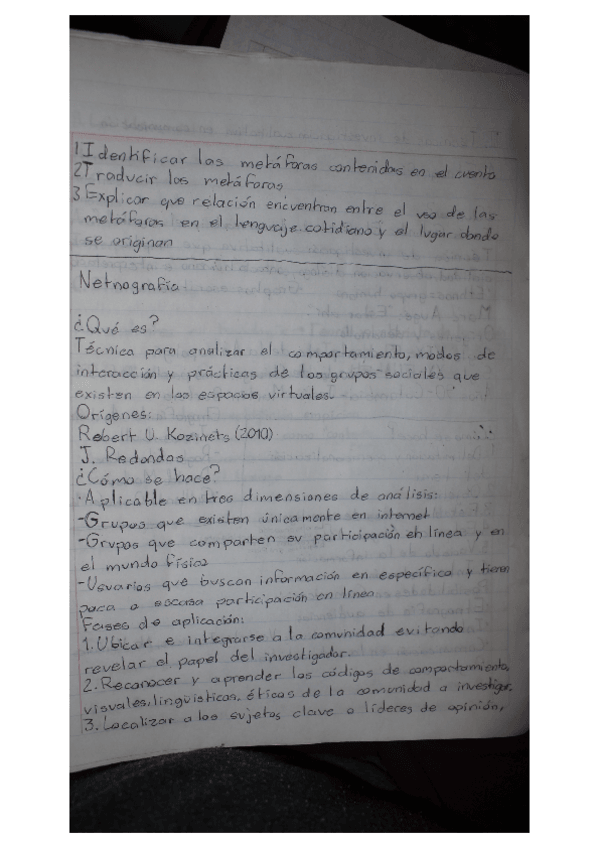 1 Identificar las metáforas contenidas en el cuento
2 Traducir las metáforas
3 Explicar que relación encuentran entre el uso de las
metáforas en el lenguaje cotidiano y el lugar donde
se originan
Netnografía
¿Qué es?
Técnica para analizar el comportamiento, modos de
interacción y prácticas de los grupos sociales que
existen en los espacios virtuales.
Orígenes:
Robert U. Kozinets (2010)
J. Redondas
¿Cómo se hace?
·Aplicable en tres dimensiones de análisis:
-Grupos que existen únicamente en internet
-Grupos que comparten su participación en línea y en
el mundo físico
-Usuarios que buscan información en específica y tienen
poca o escasa participación en línea
Fases de aplicación:
1. Ubicar e integrarse a la comunidad evitando
revelar el papel del investigador.
2. Reconocer y aprender los códigos de comportamiento,
visuales, lingüísticos, éticos de la comunidad a investigar.
3. Localizar a los sujetos clave o líderes de opinión,